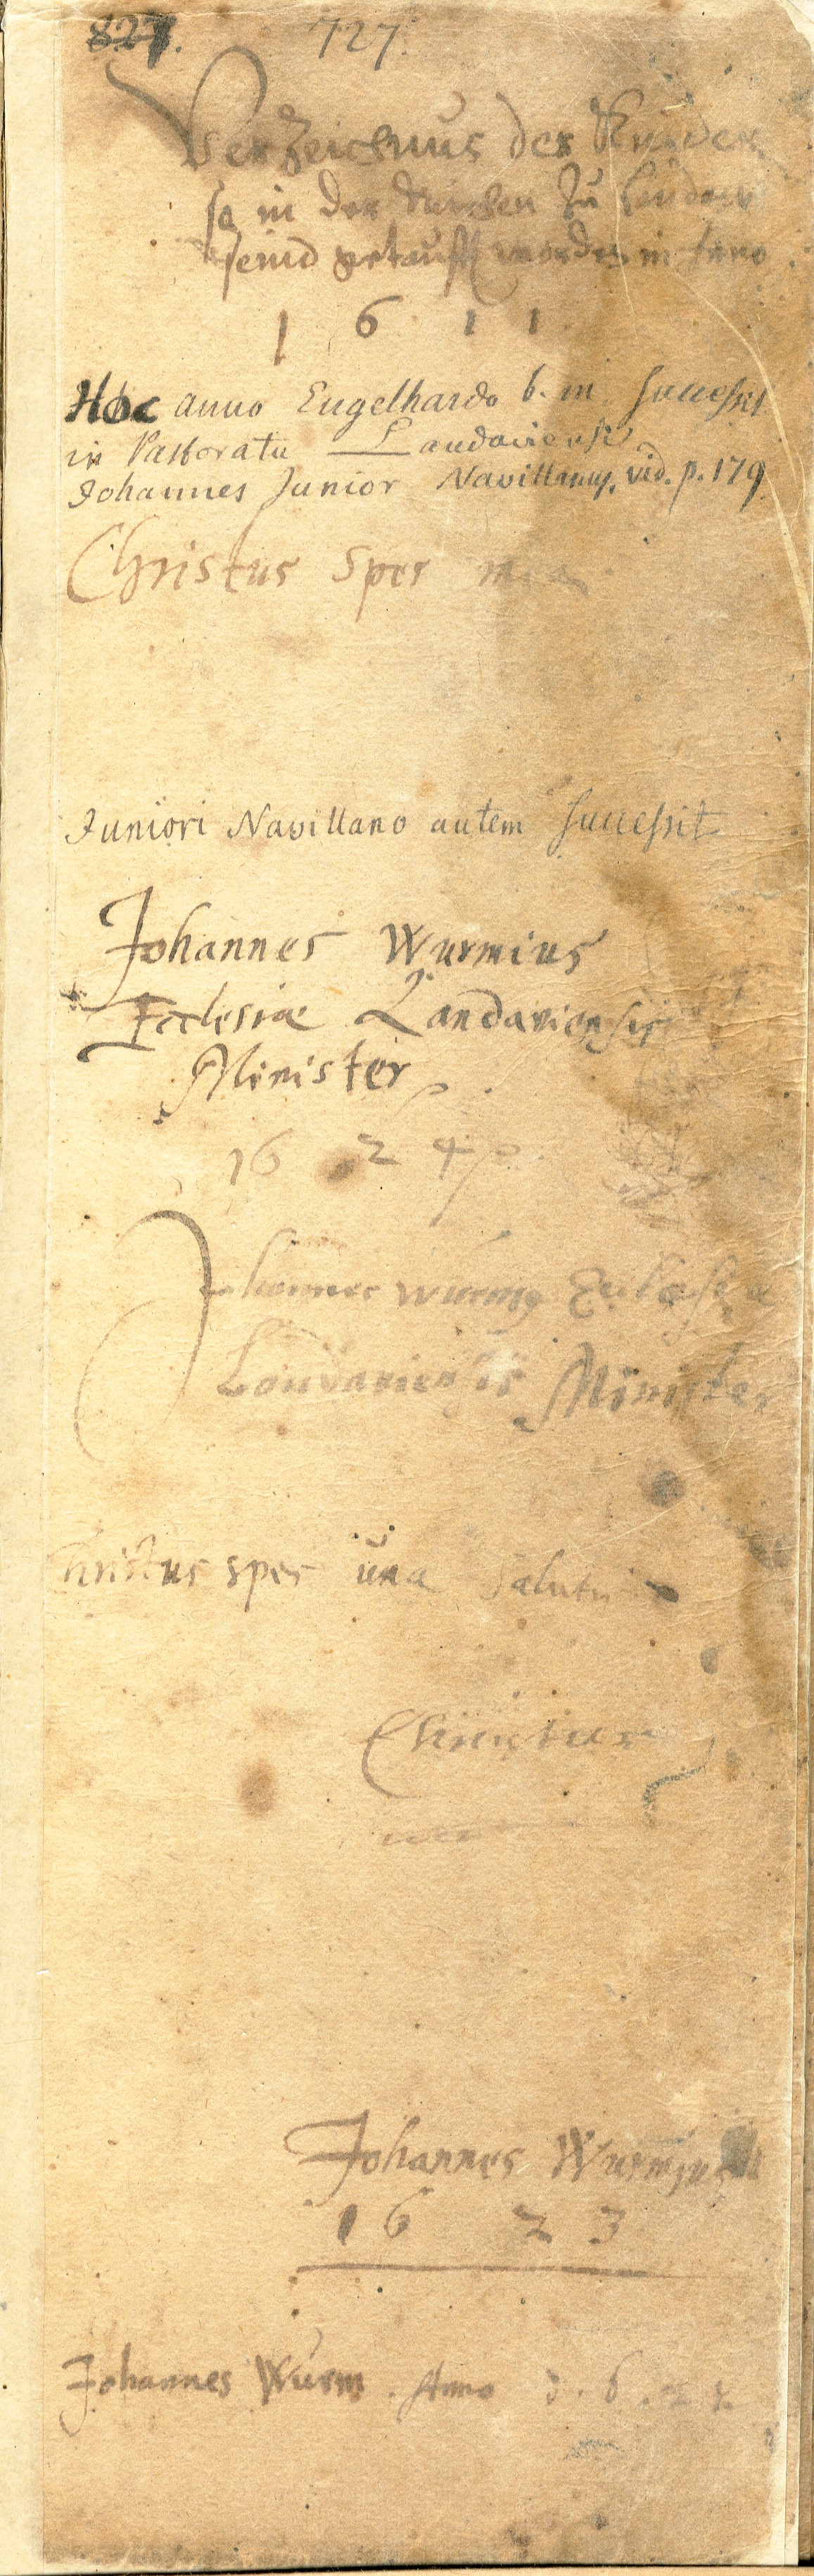 827. 727.
Verzeichnus der Kinder
so in der Kirchen zu Lindaw
seind getaufft worden in Anno
1 6 1 1
Hoc anno Engelhardo b. m. successit
in Pastoratu Landaviensi
Johannes Junior Navillanus. vid. p. 179
Christus spes mea
Juniori Navillano autem successit
Johannes Wurmius
Ecclesiæ Landaviensis
Minister
16 2 4
Johannes Wurmius Ecclesiæ
Landaviensis Minister
Christus spes una salutis
Christus
Johannes Wurmius
1 6 2 3
Johannes Wurm. Anno